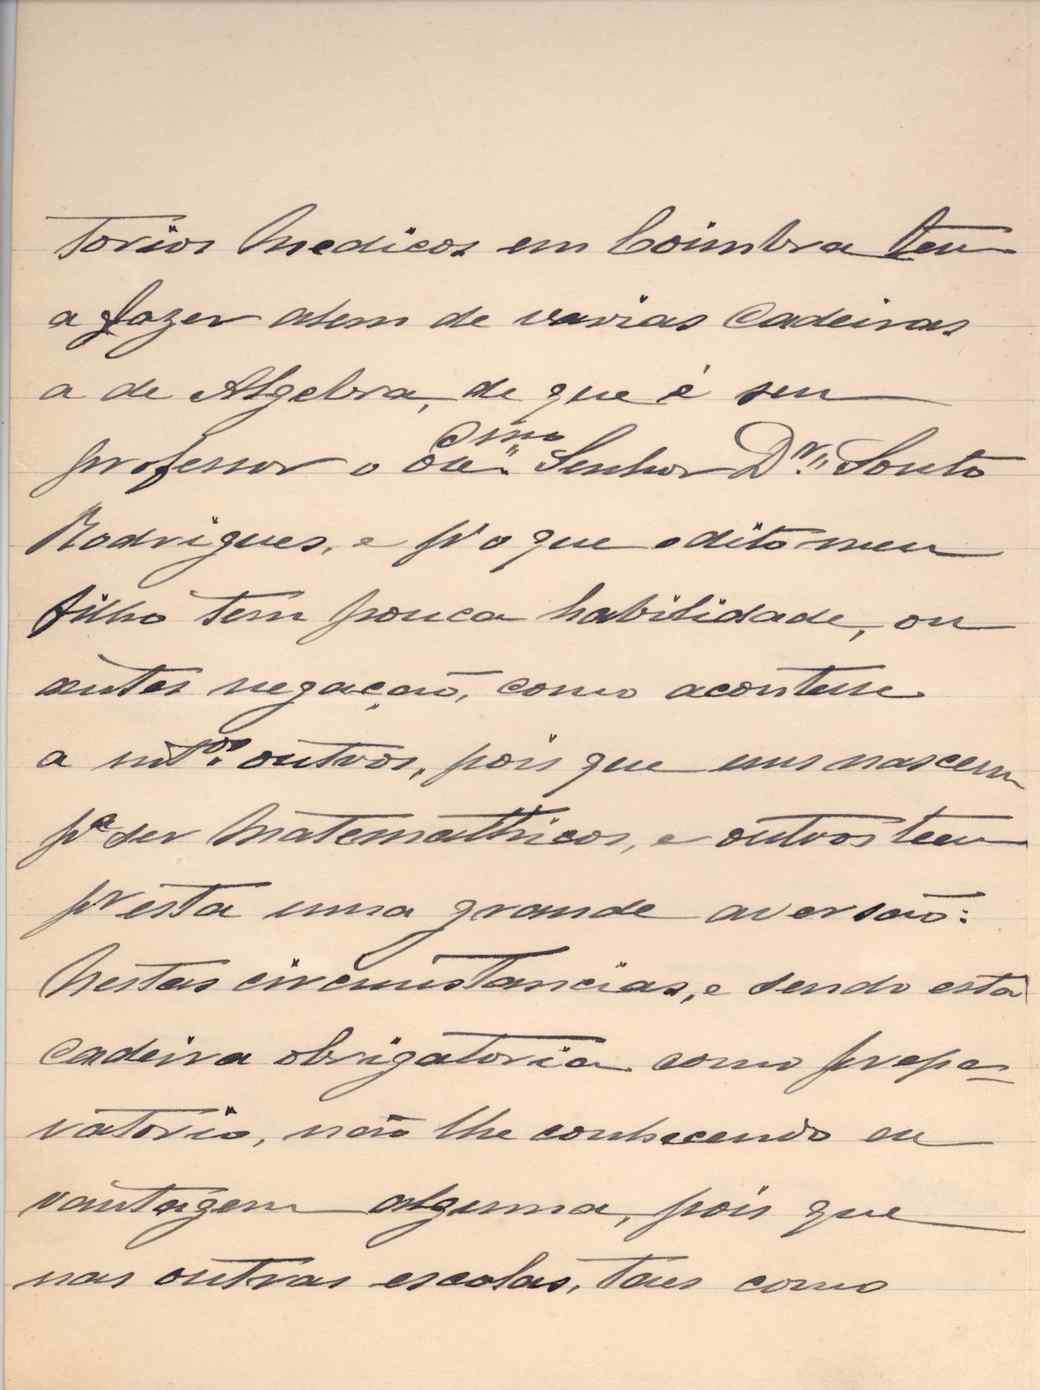 torios Medicos em Coimbra tem
a fazer alem de varias Cadeiras
a de Algebra, de que é seu
professor o Exmo Senhor Dr. Souto
Rodrigues, e p'o que o dito meu
filho tem pouca habilidade, ou
antes negação, como acontesse
a mtos. outros, pois que uns nascem
pa ser Matematthicos, e outros teem
pr esta uma grande aversão:
Nestas circumstancias, e sendo esta
Cadeira obrigatoria como prepa-
ratorio, não lhe conhecendo eu
vantagem alguma, pois que
nas outras escolas, taes como